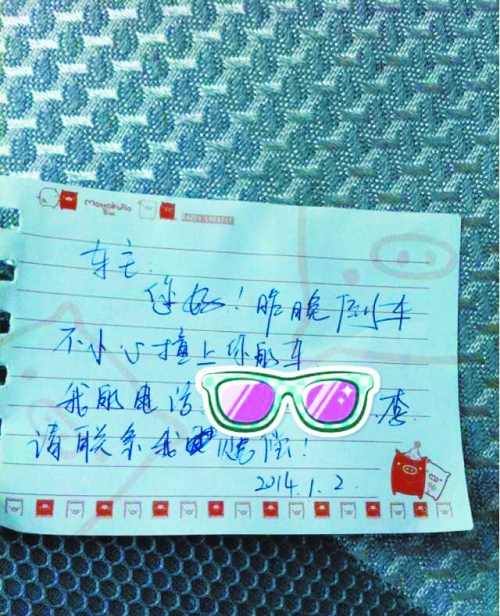 MONOKURO
Boo
车主:
你好！昨晚倒车
不小心撞上你的车
我的电话 李
请联系我 赔偿！
2014.1.2.